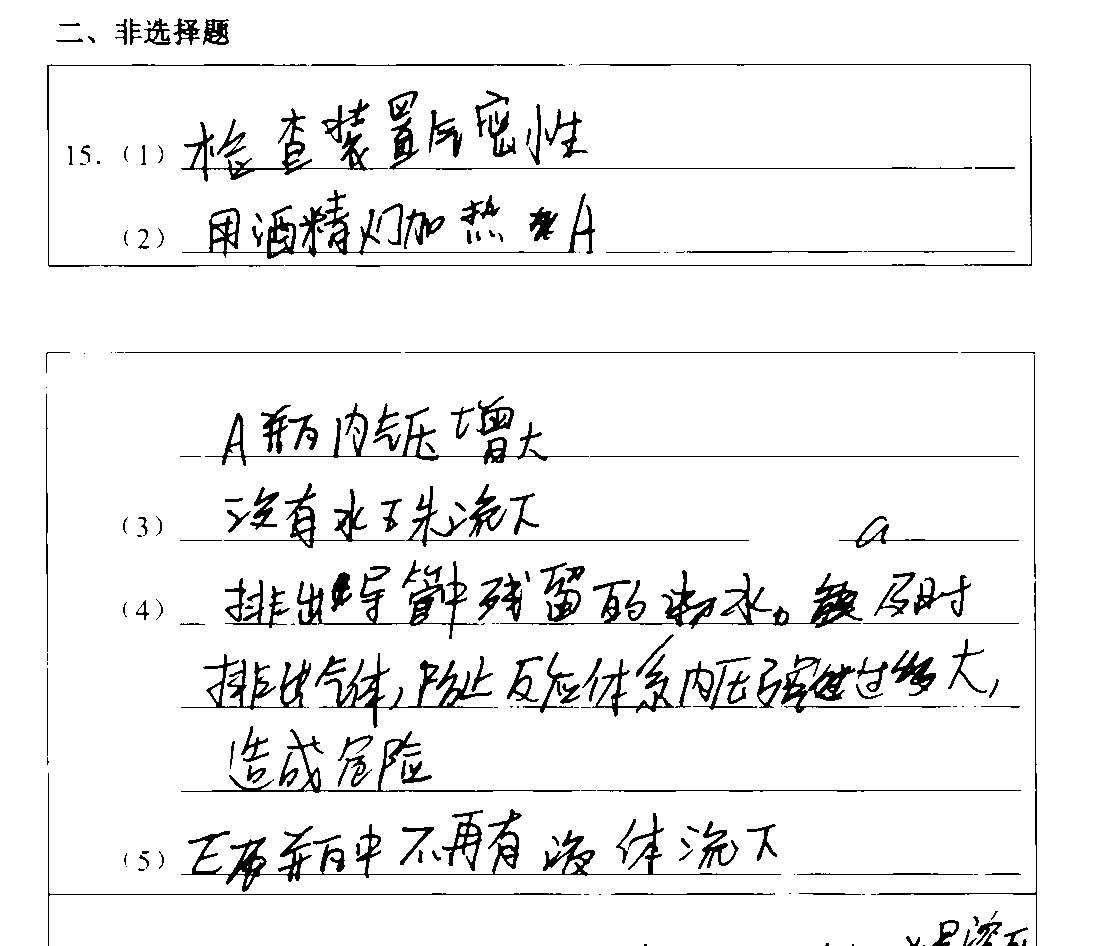 二、非选择题
15.（1）检查装置气密性
（2）用酒精灯加热A
A瓶内气压增大
（3）没有水珠流下 a
（4）排出导管中残留的水。及时
排出气体，防止反应体系内压强过大，
造成危险
（5）E瓶中不再有液体流下